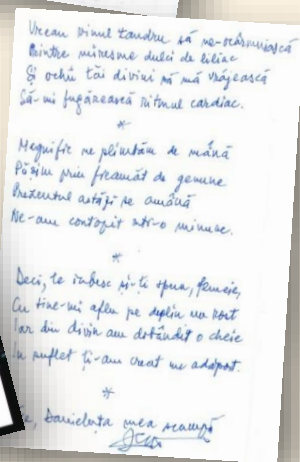 Vreau vinul tandru să ne-ocârmuiască
Printre miresme dulci de liliac
Și ochii tăi divini să mă vrăjească
Să-mi fugărească ritmul cardiac.
*
Magnific ne plimbăm de mână
Pășim prin freamăt de genune
Prezentul astăzi se amână
Ne-am contopit într-o minune.
*
Deci, te iubesc și-ți spun, femeie,
Cu tine-mi aflu pe deplin un rost
Iar din divin am dobândit o cheie
In suflet ți-am creat un adăpost.
*
, Danielența mea scumpă